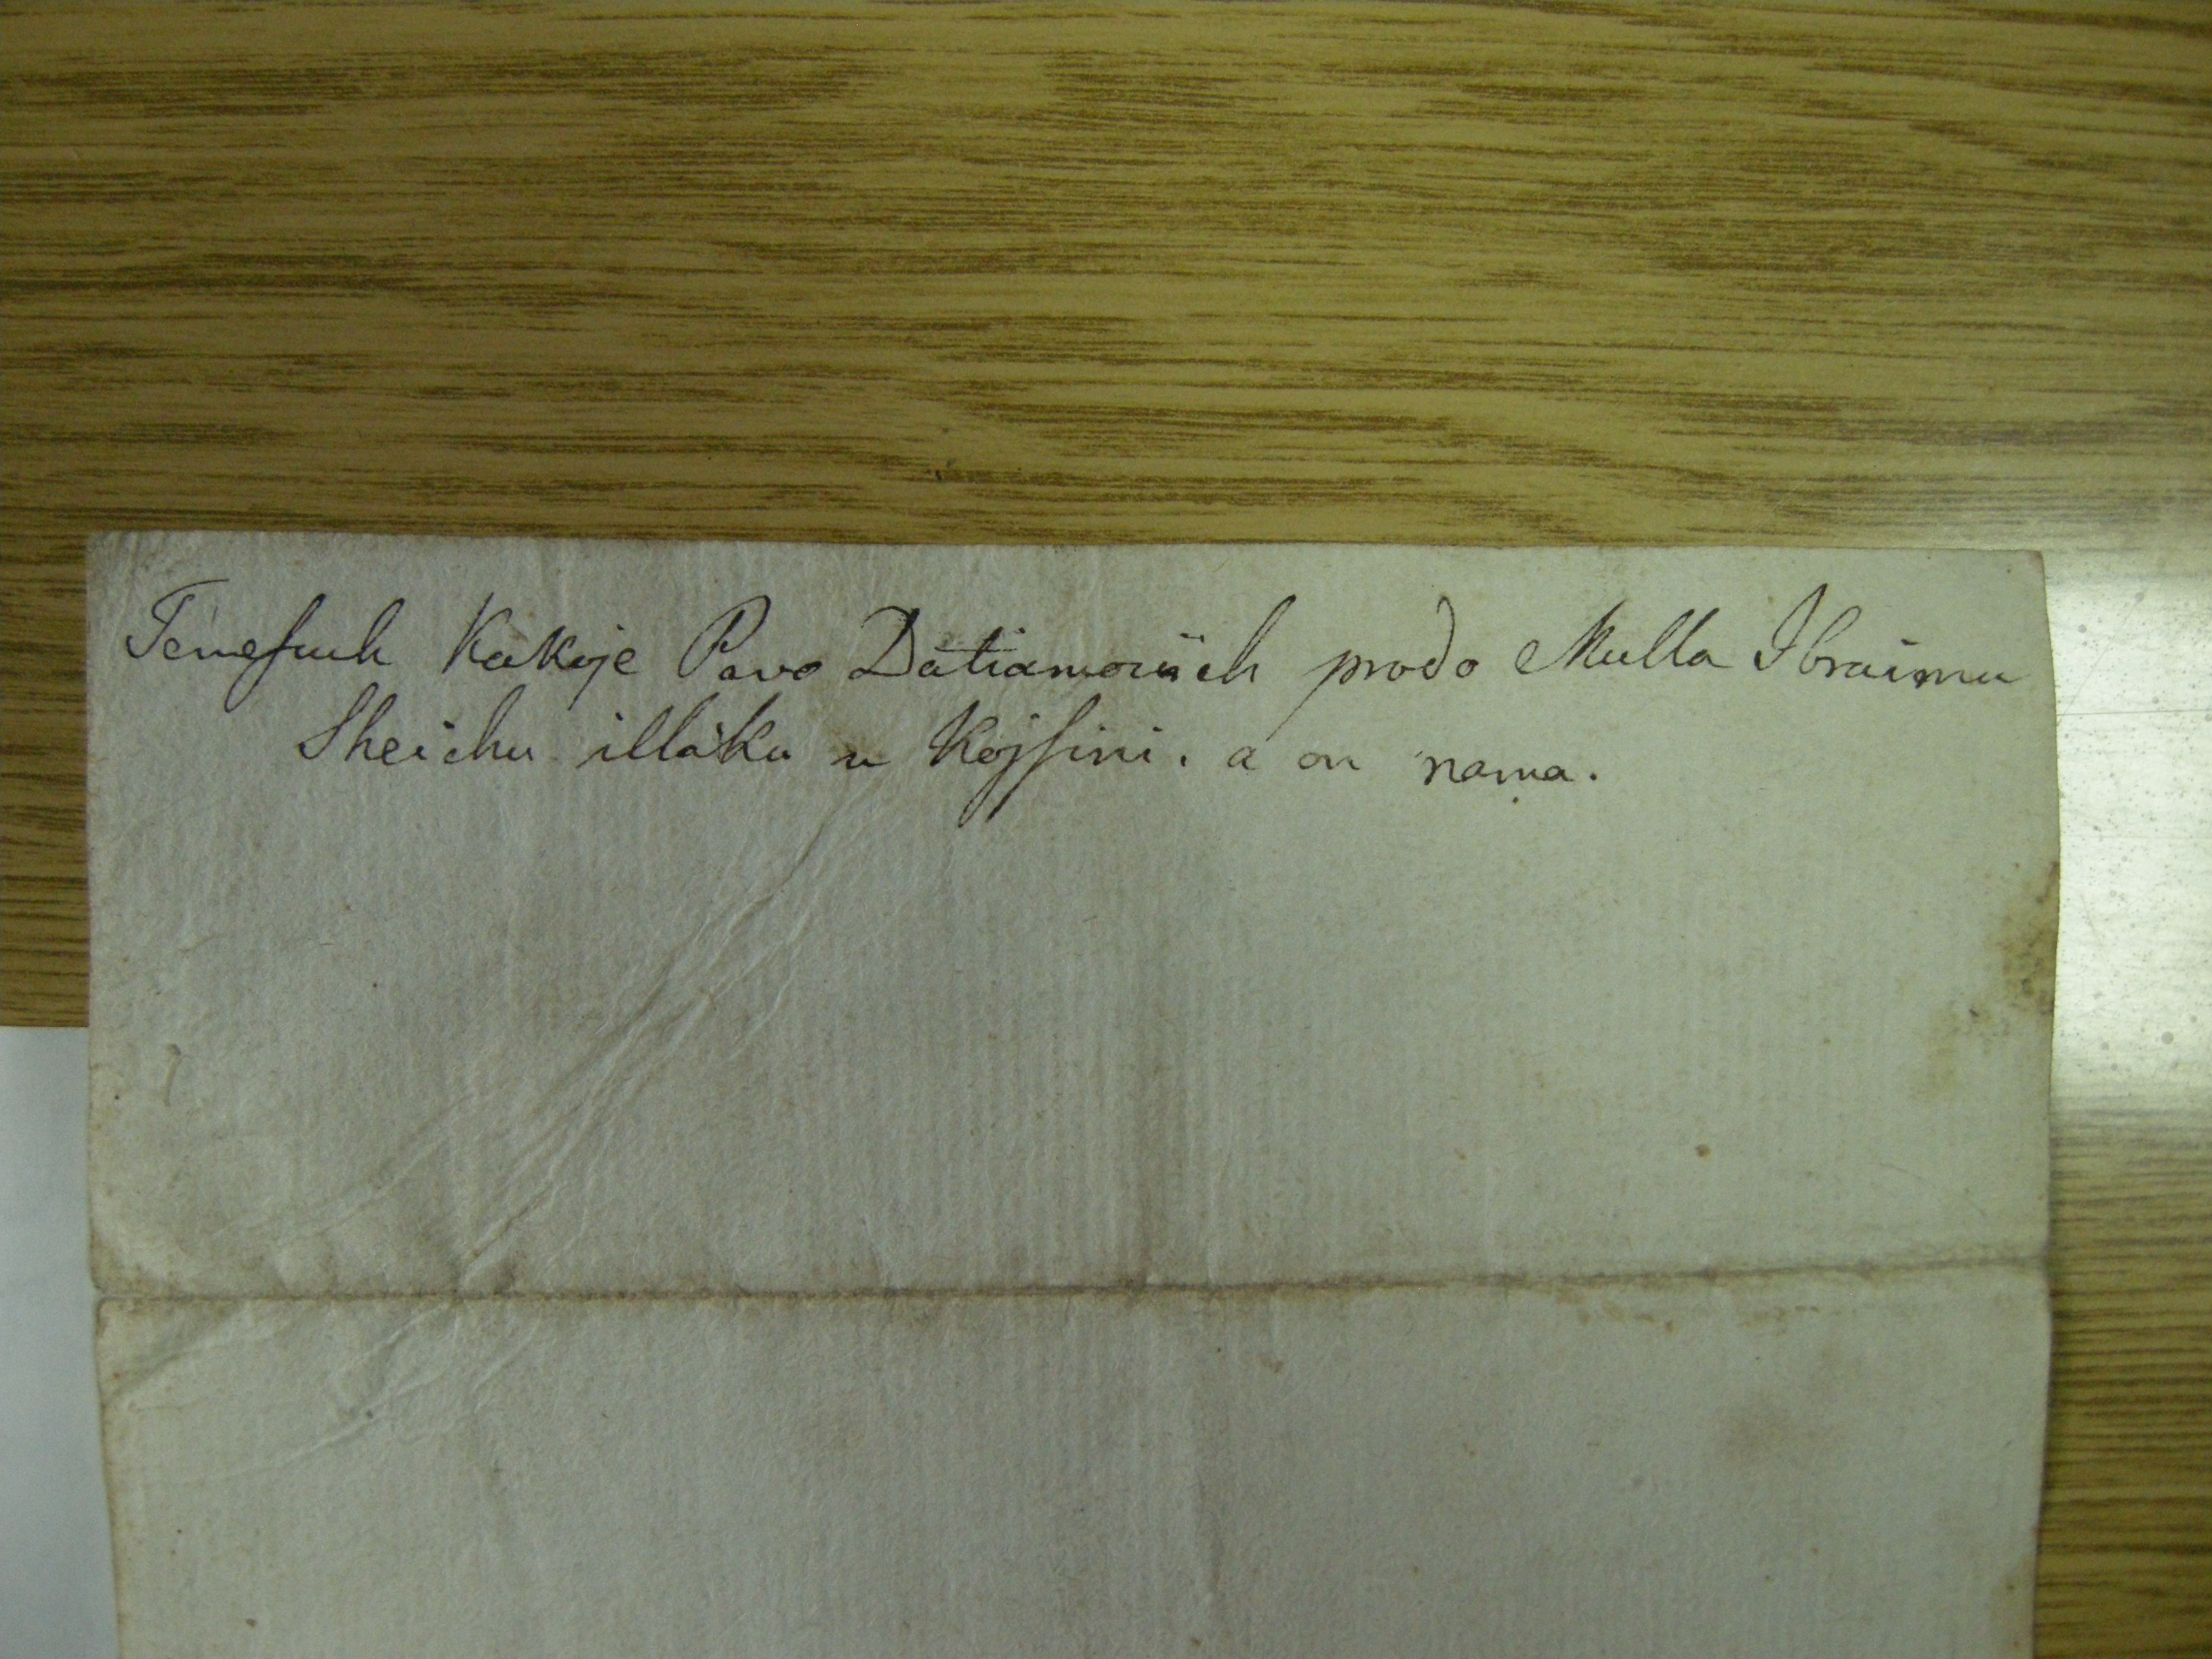 Temesuch Kakoje Pavo Datiamovich prodo Mulla Ibraimu
Sheichu illaku u Kojsini. a on nama.